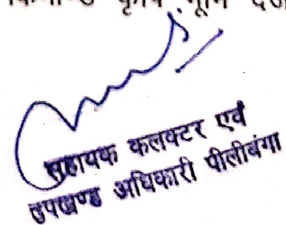 कृषि भूमि
सहायक कलक्टर एवं
उपखण्ड अधिकारी पीलीबंगा